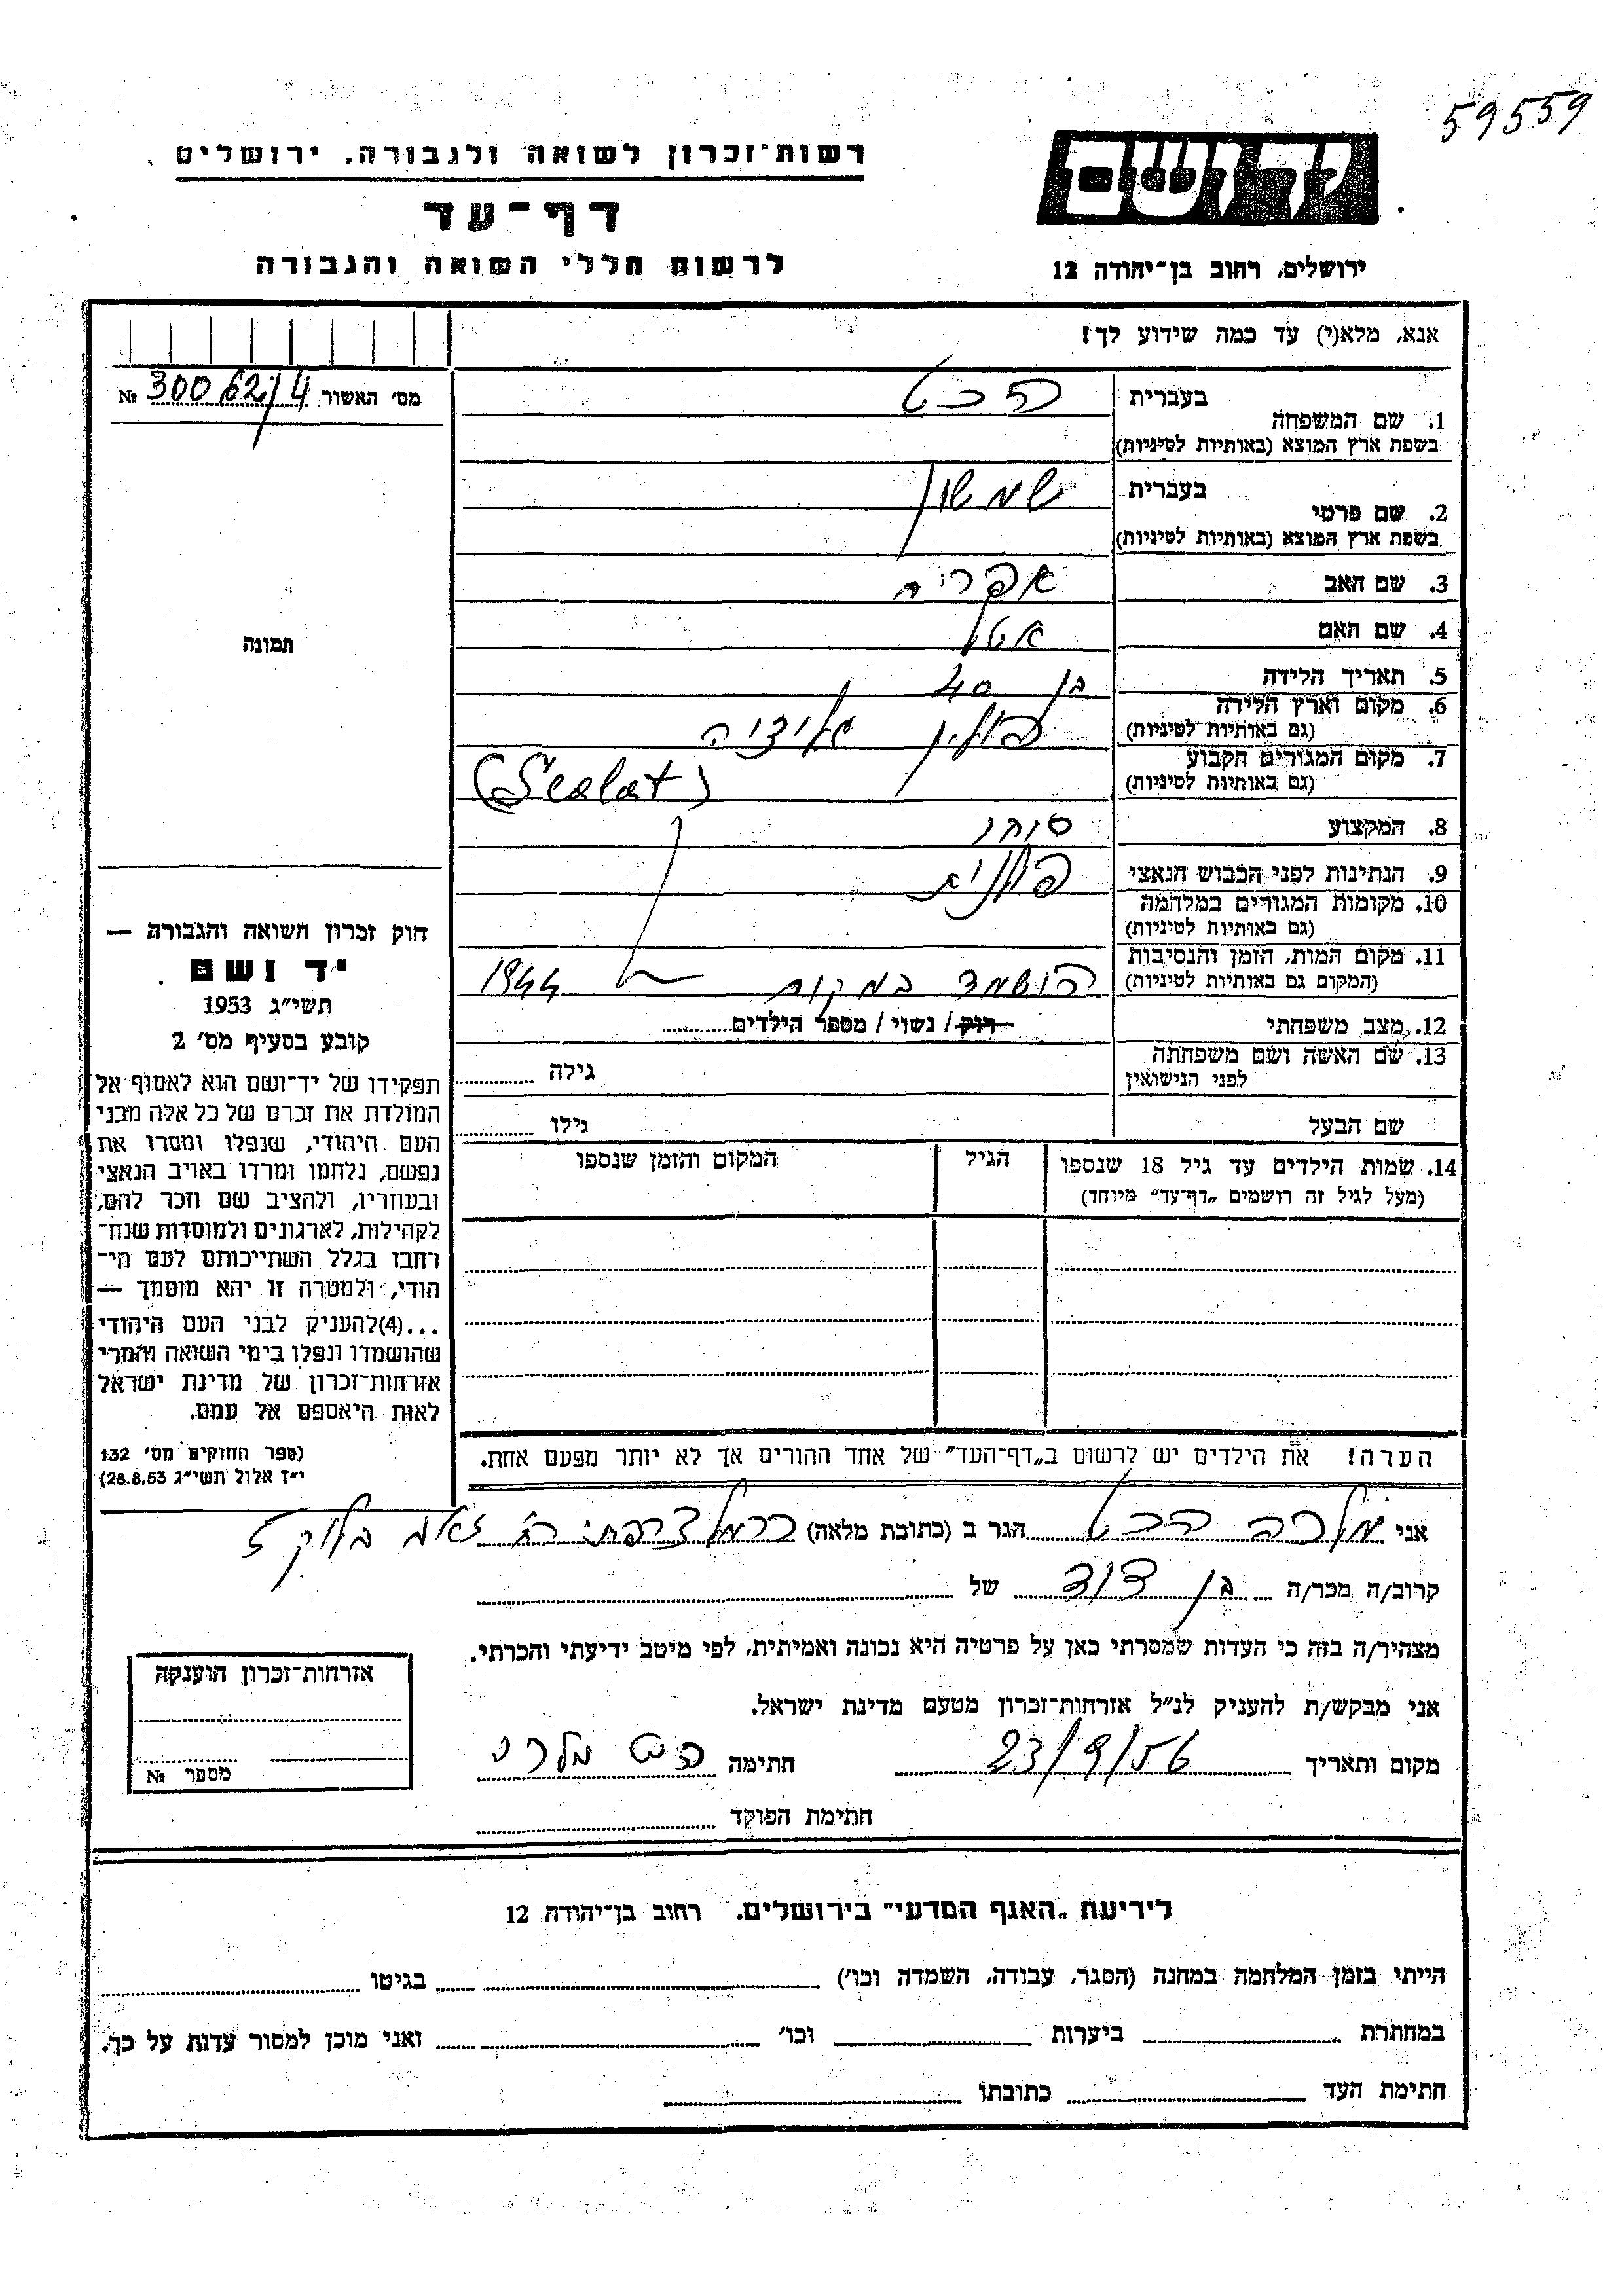 59559
יד ושם
ירושלים, רחוב בן־יהודה 12
רשות־זכרון לשואה ולגבורה, ירושלים
דף־עד
לרשום חללי השואה והגבורה
אנא, מלא(י) עד כמה שידוע לך!
מס׳ האשור 300 62/4 №
1. שם המשפחה
בעברית הכט
בשפת ארץ המוצא (באותיות לטיניות)
2. שם פרטי
בעברית שמשון
בשפת ארץ המוצא (באותיות לטיניות)
3. שם האב אפרים
4. שם האם
5. תאריך הלידה בן 40
6. מקום וארץ הלידה פולין גליציה
(גם באותיות לטיניות)
7. מקום המגורים הקבוע (Scalat)
(גם באותיות לטיניות)
8. המקצוע סוחר
9. הנתינות לפני הכבוש הנאצי פולנית
10. מקומות המגורים במלחמה
(גם באותיות לטיניות)
11. מקום המות, הזמן והנסיבות הושמד במקום 1944
(המקום גם באותיות לטיניות)
12. מצב משפחתי רוק / נשוי / מספר הילדים
13. שם האשה ושם משפחתה
לפני הנישואין
גילה
שם הבעל גילו
14. שמות הילדים עד גיל 18 שנספו
(מעל לגיל זה רושמים „דף־עד״ מיוחד)
הגיל
המקום והזמן שנספו
הערה! את הילדים יש לרשום ב„דף־העד״ של אחד ההורים אך לא יותר מפעם אחת.
תמונה
חוק זכרון השואה והגבורה —
יד ושם
תשי״ג 1953
קובע בסעיף מס׳ 2
תפקידו של יד־ושם הוא לאסוף אל
המולדת את זכרם של כל אלה מבני
העם היהודי, שנפלו ומסרו את
נפשם, נלחמו ומרדו באויב הנאצי
ובעוזריו, ולהציב שם וזכר להם,
לקהילות, לארגונים ולמוסדות שנח־
רחבו בגלל השתייכותם לעם הי־
הודי, ולמטרה זו יהא מוסמך —
...(4)להעניק לבני העם היהודי
שהושמדו ונפלו בימי השואה והמרי
אזרחות־זכרון של מדינת ישראל
לאות היאספם אל עמם.
(ספר החוקים מס׳ 132
י״ז אלול תשי״ג 28.8.53)
אני מלכה הכט הגר ב (כתובת מלאה) כרמל צרפתי
קרוב/ה מכר/ה בן דוד של
מצהיר/ה בזה כי העדות שמסרתי כאן על פרטיה היא נכונה ואמיתית, לפי מיטב ידיעתי והכרתי.
אני מבקש/ת להעניק לנ״ל אזרחות־זכרון מטעם מדינת ישראל.
מקום ותאריך 23/9/56 חתימה
חתימת הפוקד
אזרחות־זכרון הוענקה
מספר №
לידיעת „האגף המדעי״ בירושלים, רחוב בן־יהודה 12
הייתי בזמן המלחמה במחנה (הסגר, עבודה, השמדה וכו׳) בגיטו
במחתרת ביערות וכו׳ ואני מוכן למסור עדות על כך.
חתימת העד כתובתו